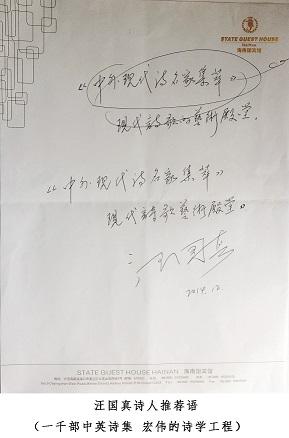 STATE GUEST HOUSE
Hainan
海南国宾馆
《中外现代诗名家集萃》
现代诗歌的藝術殿堂。
《中外现代诗名家集萃》
现代诗歌藝術殿堂。
汪国真
2014.12.
STATE GUEST HOUSE HAINAN 海南国宾馆
汪国真诗人推荐语
(一千部中英诗集 宏伟的诗学工程)